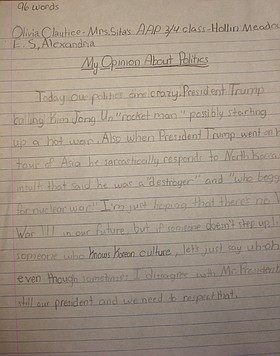 96 words
Olivia Clautice-Mrs. Sitas AAP 3/4 class-Hollin Meadows
E.S, Alexandria
My Opinion About Politics
Today our politics are crazy. President Trump
calling Kim Jong Un "rocket man" possibly starting
up a hot war. Also when President Trump went on h
tour of Asia he sarcastically responds to North Korea
insult that said he was a "destroyer" and "who begg
for nuclear war" I'm just hoping that there's no W
War III in our future, but if someone doesn't step up li
someone who knows Korean culture, let's just say uh-oh
even though sometimes I disagree with Mr. President
still our president and we need to respect that.